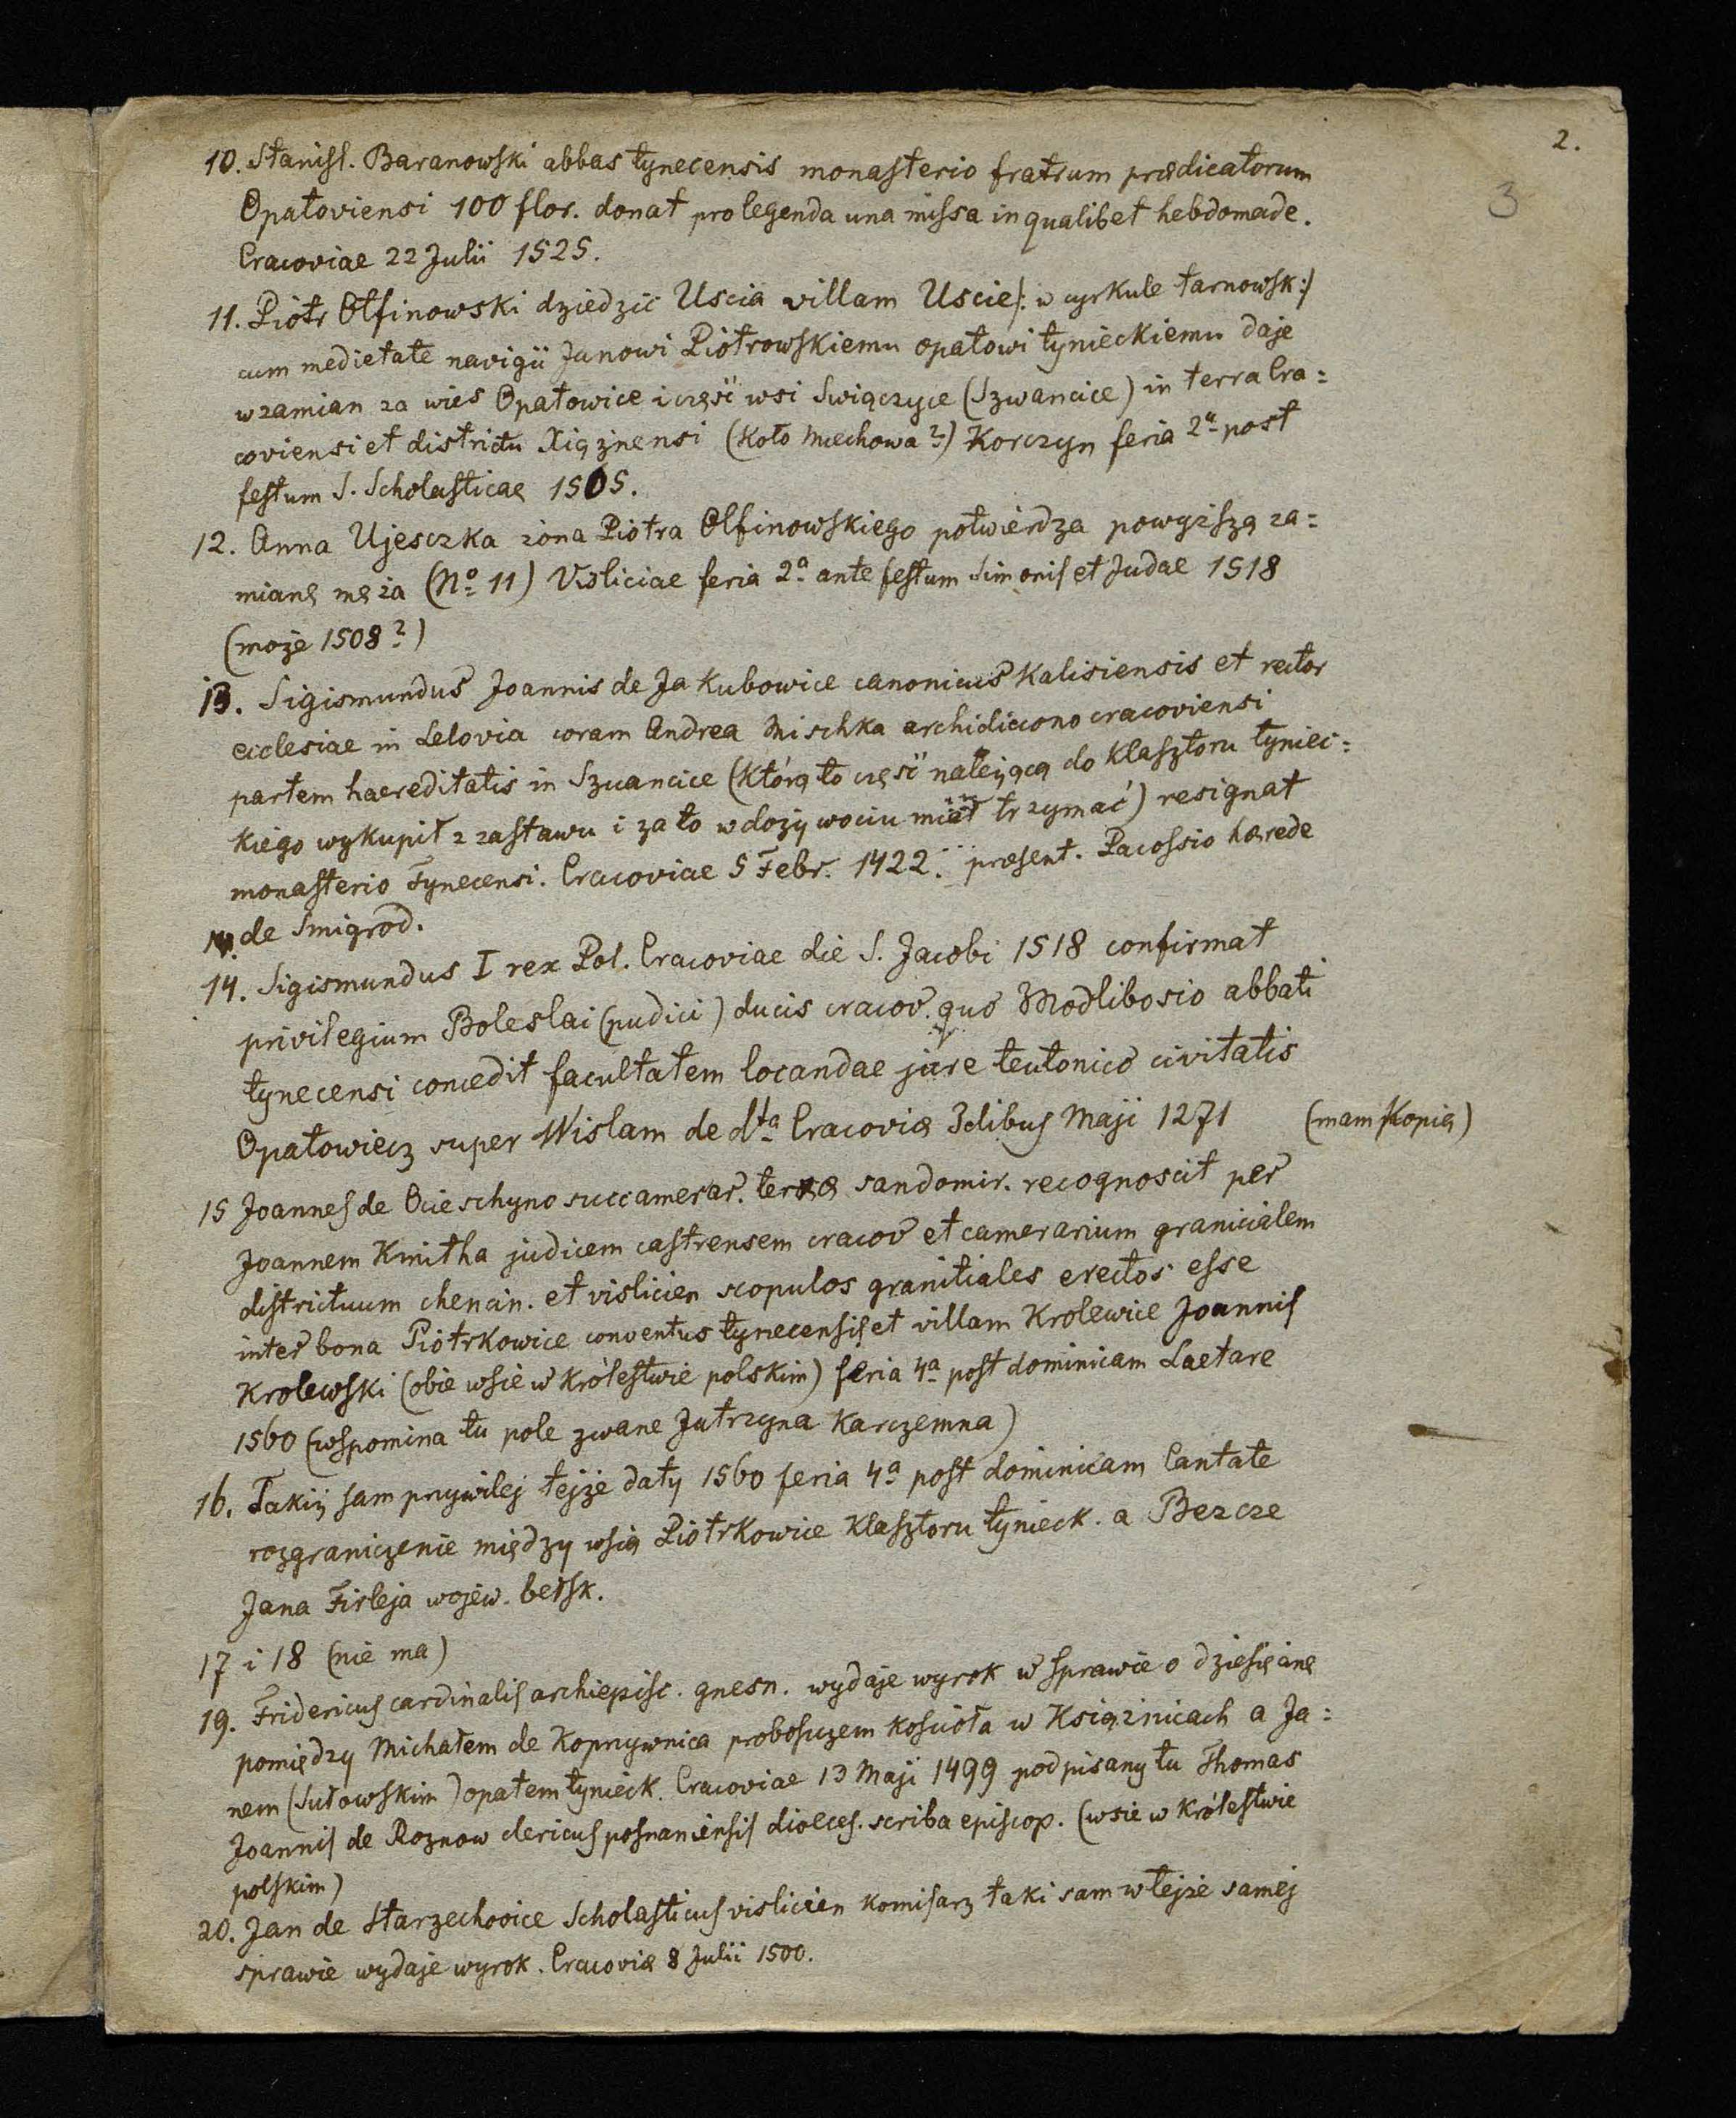 2.
3
10. Stanisl. Baranowski abbas tynecensis monasterio fratrum prædicatorum
Opatoviensi 100 flor. donat pro legenda una missa in qualibet hebdomade.
Cracoviae 22 Julii 1525.
11. Piotr Olfinowski dziedzic Uscia villam Uscie /: w cyrkule tarnowsk:/
cum medietate navigii Janowi Piotrowskiemu opatowi tynieckiemu daje
w zamian za wies Opatowice i część wsi Swięczyce (Szwancice) in terra Cra=
coviensi et districtu Xiążnensi (koło Miechowa?) Korczyn feria 2ª post
festum S. Scholasticae 1505.
12. Anna Ujesczka żona Piotra Olfinowskiego potwierdza powyższą za=
mianę męża (Nº 11) Visliciae feria 2ª ante festum Simonis et Judae 1518
(może 1508?)
13. Sigismundus Joannis de Jakubowice canonicus Kalisiensis et rector
ecclesiae in Lelovia coram Andrea Mischka archidiacono cracoviensi
partem haereditatis in Szwancice (którą to część należącą do klasztoru tyniec=
kiego wykupił z zastawu i za to w dożywociu miał trzymać) resignat
monasterio Tynecensi. Cracoviae 5 Febr. 1422. præsent. Pacossio hærede
de Smigrod.
14. Sigismundus I rex Pol. Cracoviae die S. Jacobi 1518 confirmat
privilegium Boleslai (pudici) ducis cracov. quo Modlibosio abbati
tynecensi concedit facultatem locandae jure teutonico civitatis
Opatowiecz super Wislam de dta Cracoviæ Idibus Maji 1271 (mam kopię)
15 Joannes de Ocieschyno succamerar. terræ sandomir. recognoscit per
Joannem Kmitha judicem castrensem cracov et camerarium granicialem
districtuum chencin. et vislicien scopulos granitiales erectos esse
inter bona Piotrkowice conventus tynecensis et villam Krolewice Joannis
Krolewski (obie wsie w Królestwie polskim) feria 4ª post dominicam Laetare
1560 (wspomina tu pole zwane Jutrzyna Karczemna)
16. Takiż sam przywilej tejże daty 1560 feria 4ª post dominicam Cantate
rozgraniczenie między wsią Piotrkowice klasztoru tynieck. a Bezcze
Jana Firleja wojew. bełsk.
17 i 18 (nie ma)
19. Fridericus cardinalis archiepisc. gnesn. wydaje wyrok w sprawie o dziesięcinę
pomiędzy Michałem de Koprzywnica proboszczem kościoła w Książnicach a Ja=
nem (Sułowskim) opatem tynieck. Cracoviae 13 Maji 1499 podpisany tu Thomas
Joannis de Roznow clericus posnaniensis dioeces. scriba episcop. (wsie w Królestwie
polskim)
20. Jan de Starzechovice Scholasticus vislicien komisarz taki sam w tejże samej
sprawie wydaje wyrok. Cracoviæ 8 Julii 1500.